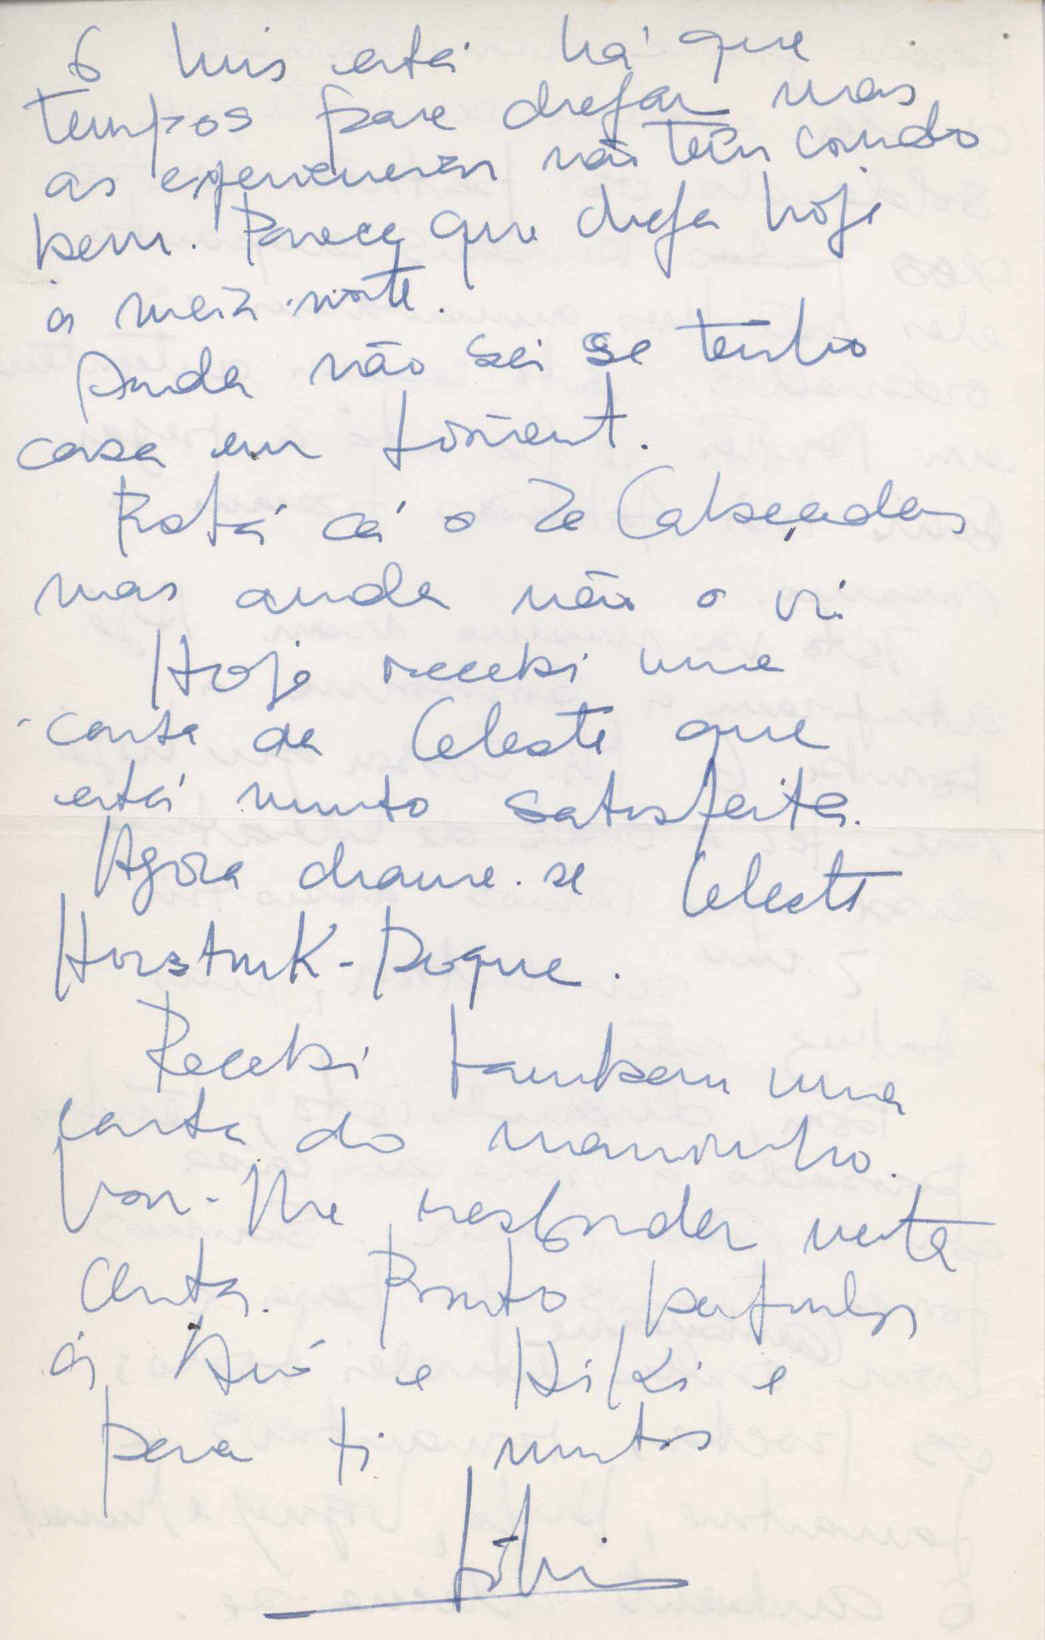 O Luis está há que
tempos para chegar mas
as experiencias não têm corrido
bem. Parece que chega hoje
à meia-noite.
Ainda não sei se tenho
casa em Lorient.
Está cá o Zé Cabeçadas
mas ainda não o vi.
Hoje recebi uma
carta da Celeste que
está muito satisfeita.
Agora chama-se Celeste
Duque.
Recebi tambem uma
carta do maninho.
Vou-lhe responder nesta
carta. Ponto
à Avó e Kiki e
para ti muitos